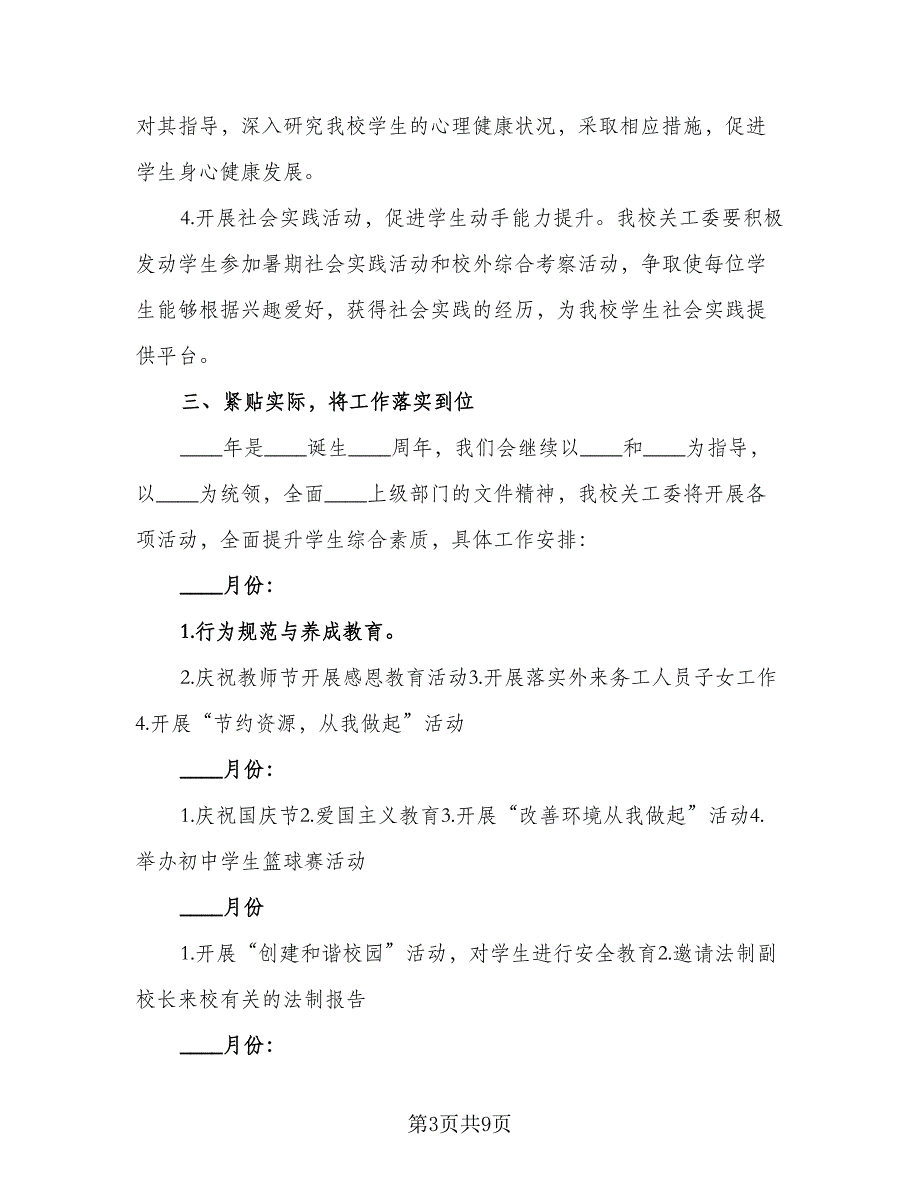 对其指导，深入研究我校学生的心理健康状况，采取相应措施，促进
学生身心健康发展。
4.开展社会实践活动，促进学生动手能力提升。我校关工委要积极
发动学生参加暑期社会实践活动和校外综合考察活动，争取使每位学
生能够根据兴趣爱好，获得社会实践的经历，为我校学生社会实践提
供平台。
三、紧贴实际，将工作落实到位
____年是____诞生____周年，我们会继续以____和____为指导，
以____为统领，全面____上级部门的文件精神，我校关工委将开展各
项活动，全面提升学生综合素质，具体工作安排：
____月份：
1.行为规范与养成教育。
2.庆祝教师节开展感恩教育活动3.开展落实外来务工人员子女工作
4.开展“节约资源，从我做起”活动
____月份：
1.庆祝国庆节2.爱国主义教育3.开展“改善环境从我做起”活动4.
举办初中学生篮球赛活动
____月份
1.开展“创建和谐校园”活动，对学生进行安全教育2.邀请法制副
校长来校有关的法制报告
____月份：
第3页共9页